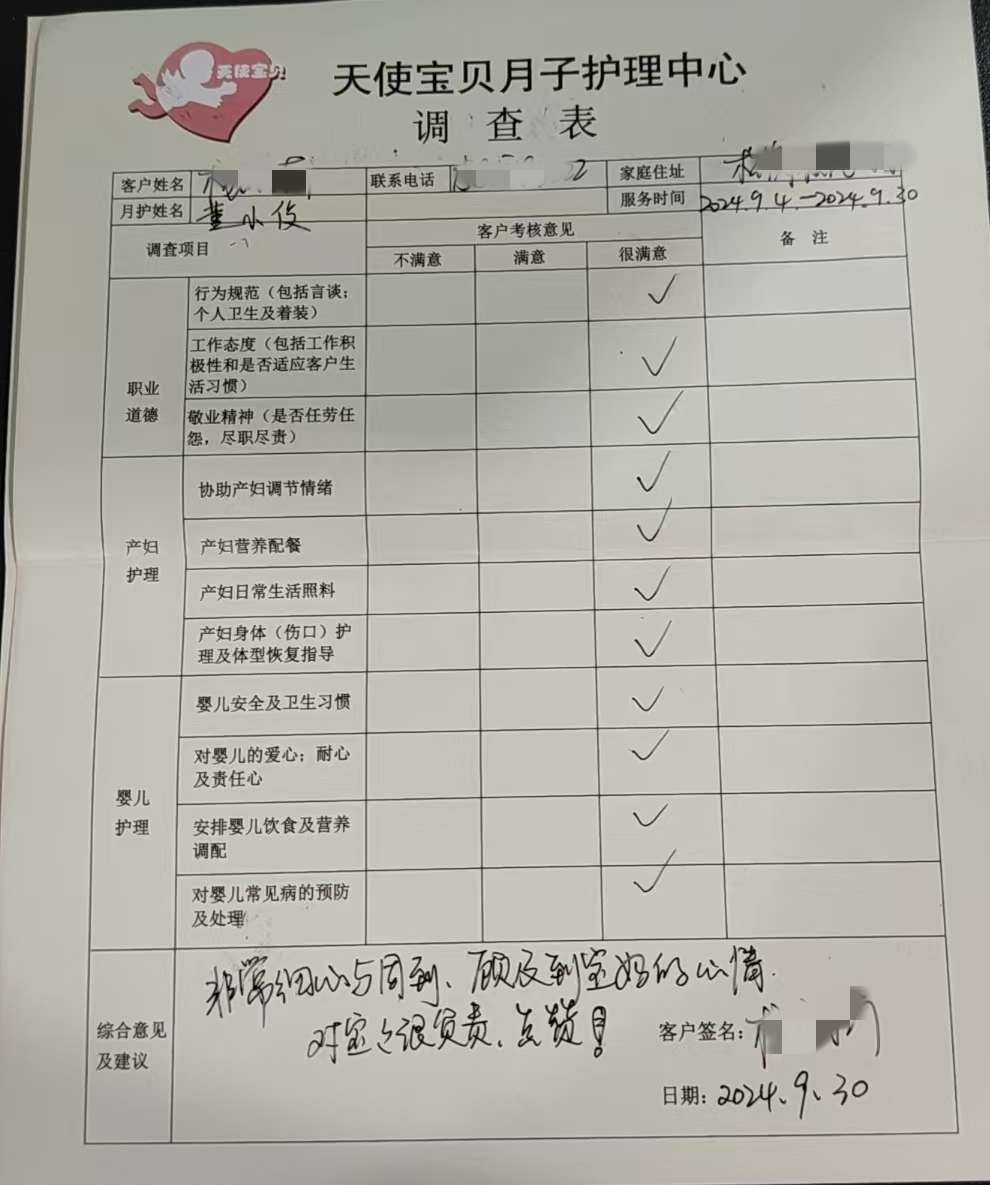 天使宝贝
天使宝贝月子护理中心
调查表
客户姓名 联系电话 家庭住址
月护姓名 董小俊 服务时间 2024.9.4.—2024.9.30
调查项目 客户考核意见 备 注
不满意 满意 很满意
职业
道德
行为规范（包括言谈；
个人卫生及着装）
工作态度（包括工作积
极性和是否适应客户生
活习惯）
敬业精神（是否任劳任
怨，尽职尽责）
产妇
护理
协助产妇调节情绪
产妇营养配餐
产妇日常生活照料
产妇身体（伤口）护
理及体型恢复指导
婴儿
护理
婴儿安全及卫生习惯
对婴儿的爱心；耐心
及责任心
安排婴儿饮食及营养
调配
对婴儿常见病的预防
及处理
综合意见
及建议
非常细心与周到、顾及到宝妈的心情.
对宝宝很负责、点赞！
客户签名：
日期：2024.9.30